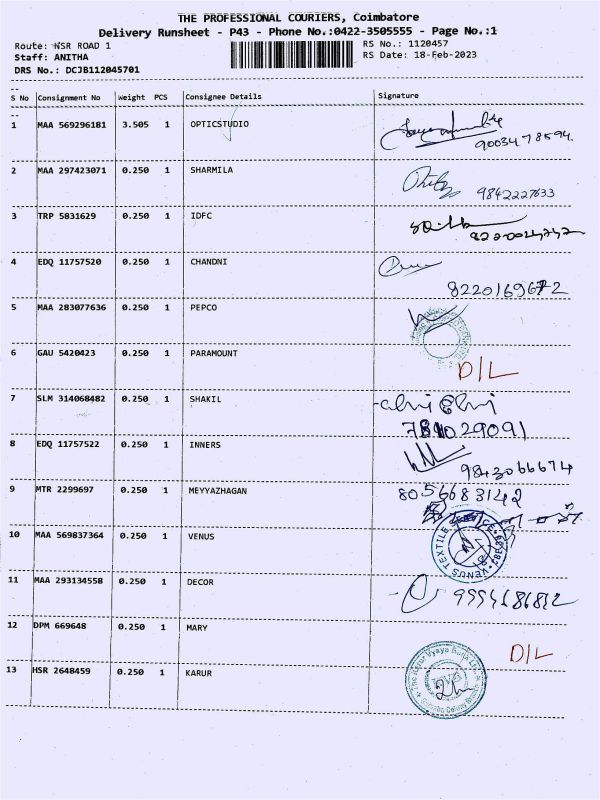 THE PROFESSIONAL COURIERS, Coimbatore
Delivery Runsheet - P43 - Phone No.:0422-3505555 - Page No.:1
Route: HSR ROAD 1
RS No.: 1120457
Staff: ANITHA
RS Date: 18-Feb-2023
DRS No.: DCJB112045701
S No Consignment No Weight PCS Consignee Details Signature
1 MAA 569296181 3.505 1 OPTICSTUDIO
9003478594
2 MAA 297423071 0.250 1 SHARMILA
9842227633
3 TRP 5831629 0.250 1 IDFC
4 EDQ 11757520 0.250 1 CHANDNI
8220169672
5 MAA 283077636 0.250 1 PEPCO
6 GAU 5420423 0.250 1 PARAMOUNT
D/L
7 SLM 314068482 0.250 1 SHAKIL
8 EDQ 11757522 0.250 1 INNERS
9843066674
9 MTR 2299697 0.250 1 MEYYAZHAGAN
8056683142
10 MAA 569837364 0.250 1 VENUS
VENUS TEXTILE
11 MAA 293134558 0.250 1 DECOR
12 DPM 669648 0.250 1 MARY
D/L
13 HSR 2648459 0.250 1 KARUR
The Karur Vysya Bank Ltd